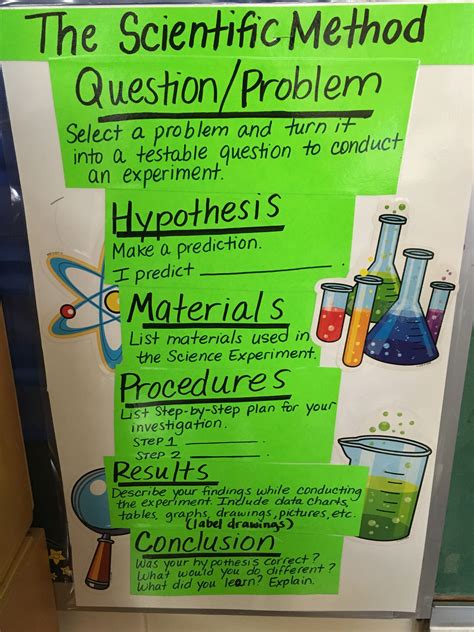 The Scientific Method
Question/Problem
Select a problem and turn it
into a testable question to conduct
an experiment.
Hypothesis
Make a prediction.
I predict ____________
Materials
List materials used in
the Science Experiment.
Procedures
List Step-by-Step plan for your
investigation.
STEP 1 ____________
STEP 2 ____________
Results
Describe your findings while conducting
the experiment. Include data charts,
tables, graphs, drawings, pictures, etc.
(label drawings)
Conclusion
Was your hypothesis correct?
What would you do different?
What did you learn? Explain.